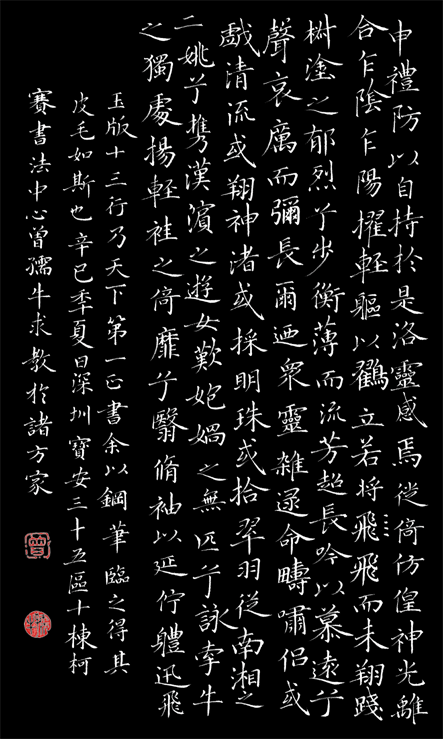 申禮防以自持於是洛靈感焉徙倚仿偟神光離
合乍陰乍陽擢輕軀以鶴立若將飛飛而未翔踐
椒塗之郁烈兮步衡薄而流芳超長吟以慕遠兮
聲哀厲而彌長爾迺眾靈雜遝命疇嘯侶或
戲清流或翔神渚或採明珠或拾翠羽從南湘之
二姚兮攜漢濱之遊女歎匏媧之無匹兮詠牽牛
之獨處揚輕袿之倚靡兮翳脩袖以延佇軆迅飛
玉版十三行乃天下第一正書余以鋼筆臨之得其
皮毛如斯也辛巳季夏日深圳寶安三十五區十棟柯
賽書法中心曾孺牛求教於諸方家
曾